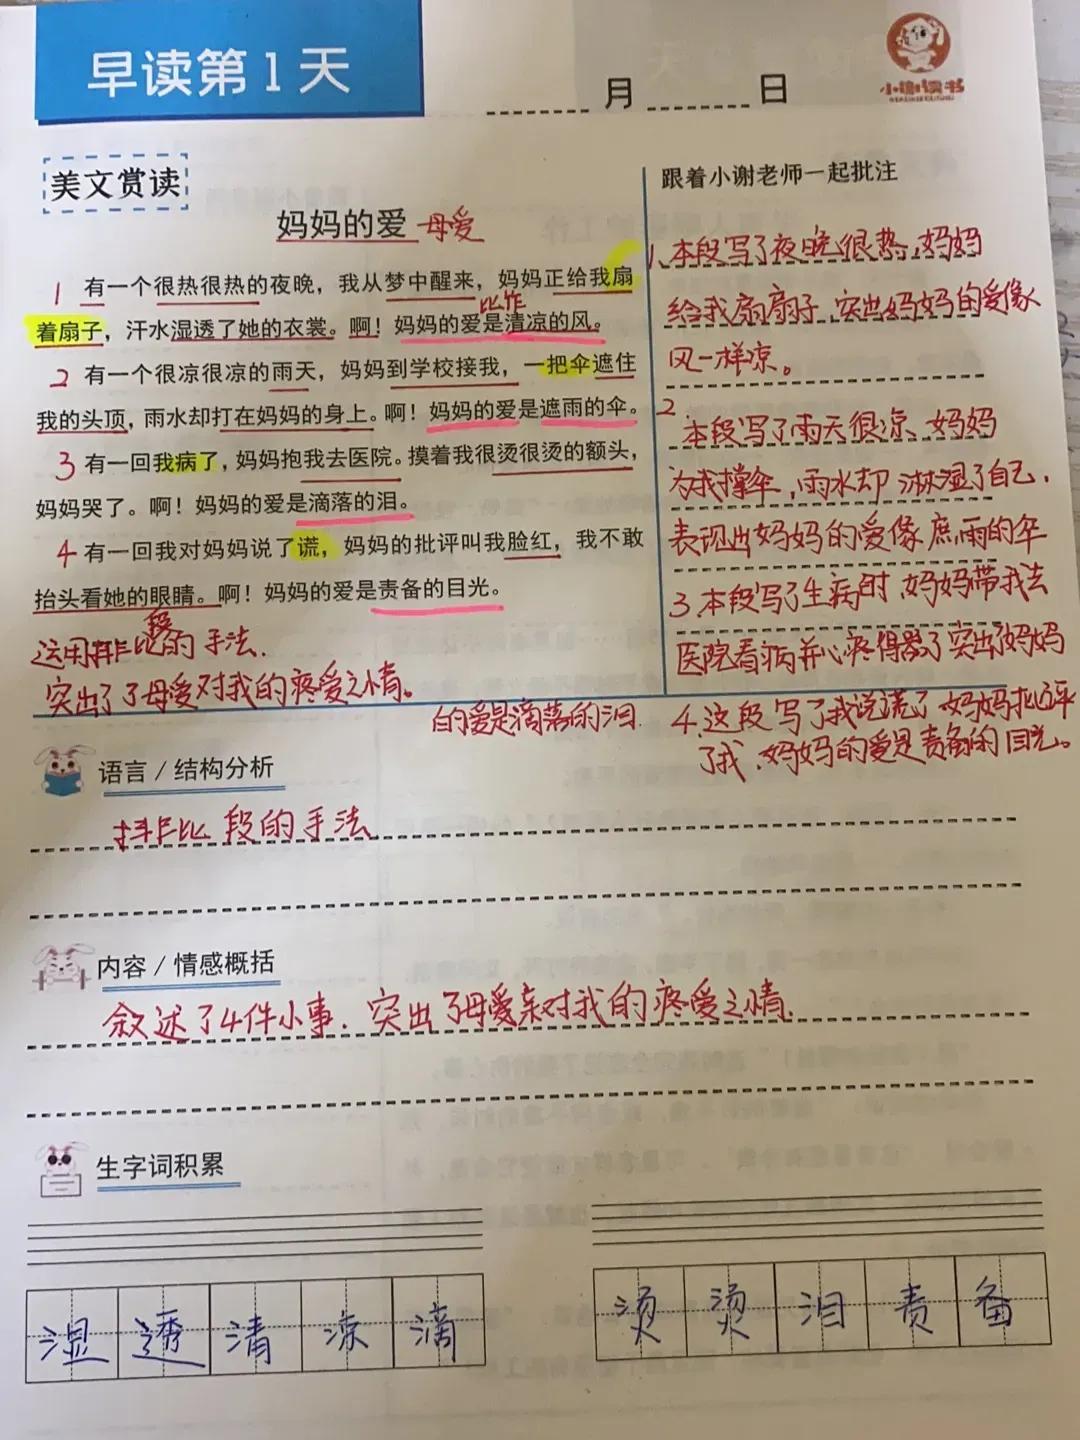 早读第1天
月 日
小谢读书
美文赏读
妈妈的爱 母爱
1 有一个很热很热的夜晚，我从梦中醒来，妈妈正给我扇
比作
着扇子，汗水湿透了她的衣裳。啊！妈妈的爱是清凉的风。
2 有一个很凉很凉的雨天，妈妈到学校接我，一把伞遮住
我的头顶，雨水却打在妈妈的身上。啊！妈妈的爱是遮雨的伞。
3 有一回我病了，妈妈抱我去医院。摸着我很烫很烫的额头，
妈妈哭了。啊！妈妈的爱是滴落的泪。
4 有一回我对妈妈说了谎，妈妈的批评叫我脸红，我不敢
抬头看她的眼睛。啊！妈妈的爱是责备的目光。
段
运用排比的手法.
突出了了母爱对我的疼爱之情。
跟着小谢老师一起批注
1.本段写了夜晚很热,妈妈
给我扇扇子,突出妈妈的爱像
风一样凉。
2.本段写了雨天很凉,妈妈
为我撑伞,雨水却淋湿了自己,
表现出妈妈的爱像庶雨的伞
3.本段写了生病时,妈妈带我去
医院看病并心疼得哭了突出了妈妈
的爱是滴落的泪.
4.这段写了我说谎了妈妈批评
了我、妈妈的爱是责备的目光。
语言/结构分析
排比段的手法
内容/情感概括
叙述了4件小事.突出了母爱亲对我的疼爱之情.
生字词积累
湿透清凉滴 烫烫泪责备